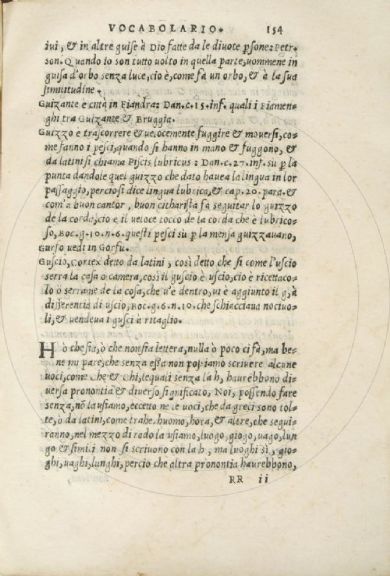 VOCABOLARIO. 154
iui, & in altre guise à Dio fatte da le diuote psone: Petr.
son. Quando io son tutto uolto in quella parte, uommene in
guisa d'orbo senza luce, cio è, come fa un orbo, & à la sua
similitudine.
Guizante è città in Fiandra: Dan. c. 15. inf. quali i Fiamen-
ghi tra Guizante & Bruggia.
Guizzo è trascorrere & uelocemente fuggire & mouersi, co-
me fanno i pesci, quando si hanno in mano & fuggono, &
da latini si chiama Piscis lubricus: Dan. c. 27. inf. su p la
punta dandole quel guizzo che dato hauea la lingua in lor
passaggio, percio si dice lingua lubrica, & cap. 20. para. &
com'a buon cantor, buon citharista fa seguitar lo guizzo
de la corda, cio è il veloce tocco de la corda che è lubrico-
so, Boc. g. 10. n. 6. questi pesci su p la mensa guizzauano,
Gurfo uedi in Gorfu.
Guscio, Cortex detto da latini, così detto che si come l'uscio
serra la casa o camera, così il guscio è uscio, cio è ricettaco-
lo o serrame de la cosa, che u'è dentro, ui è aggiunto il g, à
differentia di uscio, Boc. g. 6. n. 10. che schiacciaua noctuo-
li, & uendeua i gusci à ritaglio.
H ò che sia, ò che non sia lettera, nulla ò poco ci fa, ma be-
ne mi pare, che senza essa non possiamo scriuere alcune
uoci, come Che & chi, lequali senza la h, haurebbono di-
uersa prononzia & diuerso significato, Noi, possendo fare
senza, nõ la usiamo, eccetto ne le uoci, che da greci sono tol-
te, ò da latini, come trahe. huomo, hora, & altre, che segui-
ranno, nel mezzo di rado la usiamo, luogo, giogo, uago, lun
go & simili non si scriuono con la h, ma luoghi sì, gio-
ghi, uaghi, lunghi, percio che altra prononzia haurebbono,
RR ii